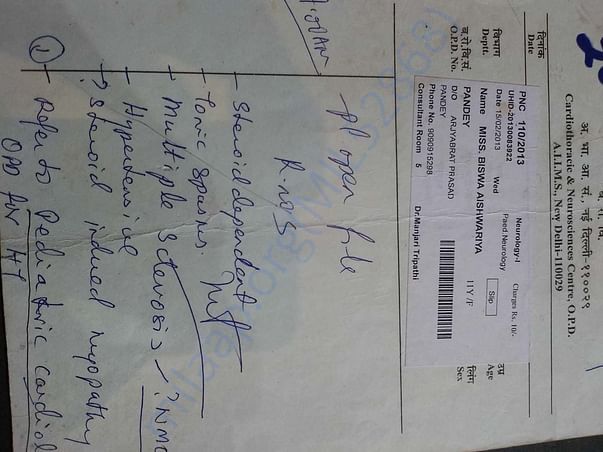 अ. भा. आ. सं., नई दिल्ली-११००२९
Cardiothoracic & Neurosciences Centre, O.P.D.
A.I.I.M.S., New Delhi-110029
दिनांक
Date
विभाग
Deptt.
ब.रो.वि.सं.
O.P.D. No.
उम्र
Age
लिंग
Sex
PNC 110/2013 Neurology-I Charges Rs. 10/-
UHID-20130083922 Paed Neurology
Date 15/02/2013 Wed Slip
Name MISS. BISWA AISHWARIYA
PANDEY 11Y /F
D/O ARJYABRAT PRASAD
PANDEY
Phone No. 9090915298
Consultant Room 5 Dr.Manjari Tripathi
Pl open file
- Steroid dependent
- Tonic spasms.
- Multiple Sclerosis / ? NMO
- Hypertensive
- ? Steroid induced myopathy
① - Refer to Pediatric Cardiol
OPD for HT